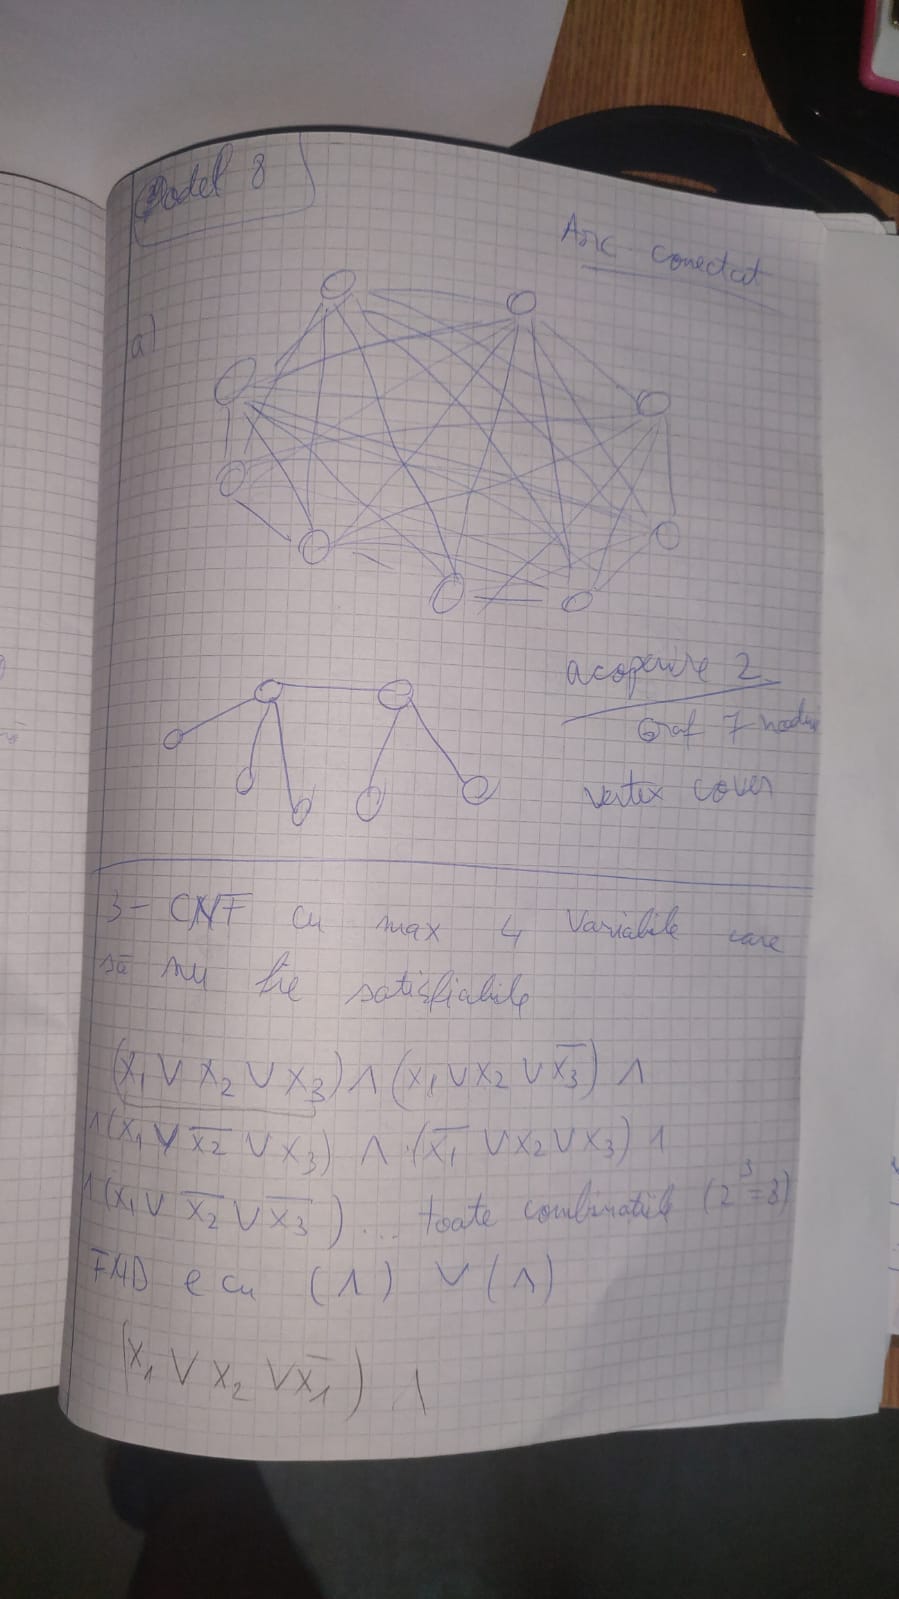 Model 8
Arc conectat
a)
acoperire 2
Graf 7 noduri
vertex cover
3-CNF cu max 4 variabile care
să nu fie satisfiabile
(x₁ ∨ x₂ ∨ x₃) ∧ (x₁ ∨ x₂ ∨ x̅₃) ∧
∧ (x₁ ∨ x̅₂ ∨ x₃) ∧ (x̅₁ ∨ x₂ ∨ x₃) ∧
∧ (x₁ ∨ x̅₂ ∨ x̅₃) ... toate combinatiile (2³=8)
FND e cu (∧) ∨ (∧)
(x₁ ∨ x₂ ∨ x̅₁) ∧